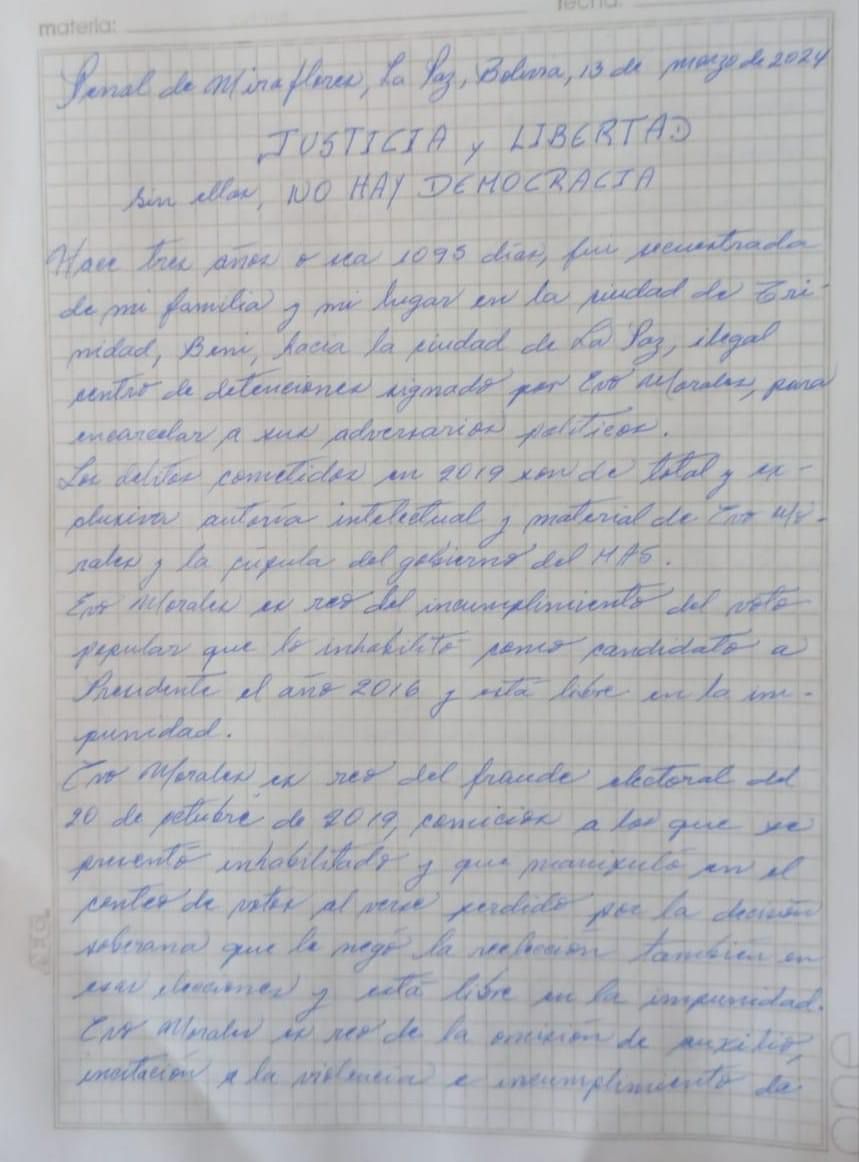 materia:
fecha:
Penal de Miraflores, La Paz, Bolivia, 13 de marzo de 2024
JUSTICIA y LIBERTAD
sin ellas, NO HAY DEMOCRACIA
Hace tres años o sea 1095 días, fui secuestrada
de mi familia y mi lugar en la ciudad de Tri-
nidad, Beni, hacia la ciudad de La Paz, ilegal
centro de detenciones signado por Evo Morales, para
encarcelar a sus adversarios políticos.
Los delitos cometidos en 2019 son de total y ex-
clusiva autoría intelectual y material de Evo Mo-
rales y la cúpula del gobierno del MAS.
Evo Morales es reo del incumplimiento del voto
popular que lo inhabilitó como candidato a
Presidente el año 2016 y está libre en la im-
punidad.
Evo Morales es reo del fraude electoral del
20 de octubre de 2019, comicios a los que se
presentó inhabilitado y que manipuló en el
conteo de votos al verse perdido por la decisión
soberana que le negó la reelección también en
esas elecciones y está libre en la impunidad.
Evo Morales es reo de la omisión de auxilio,
incitación a la violencia e incumplimiento de
one